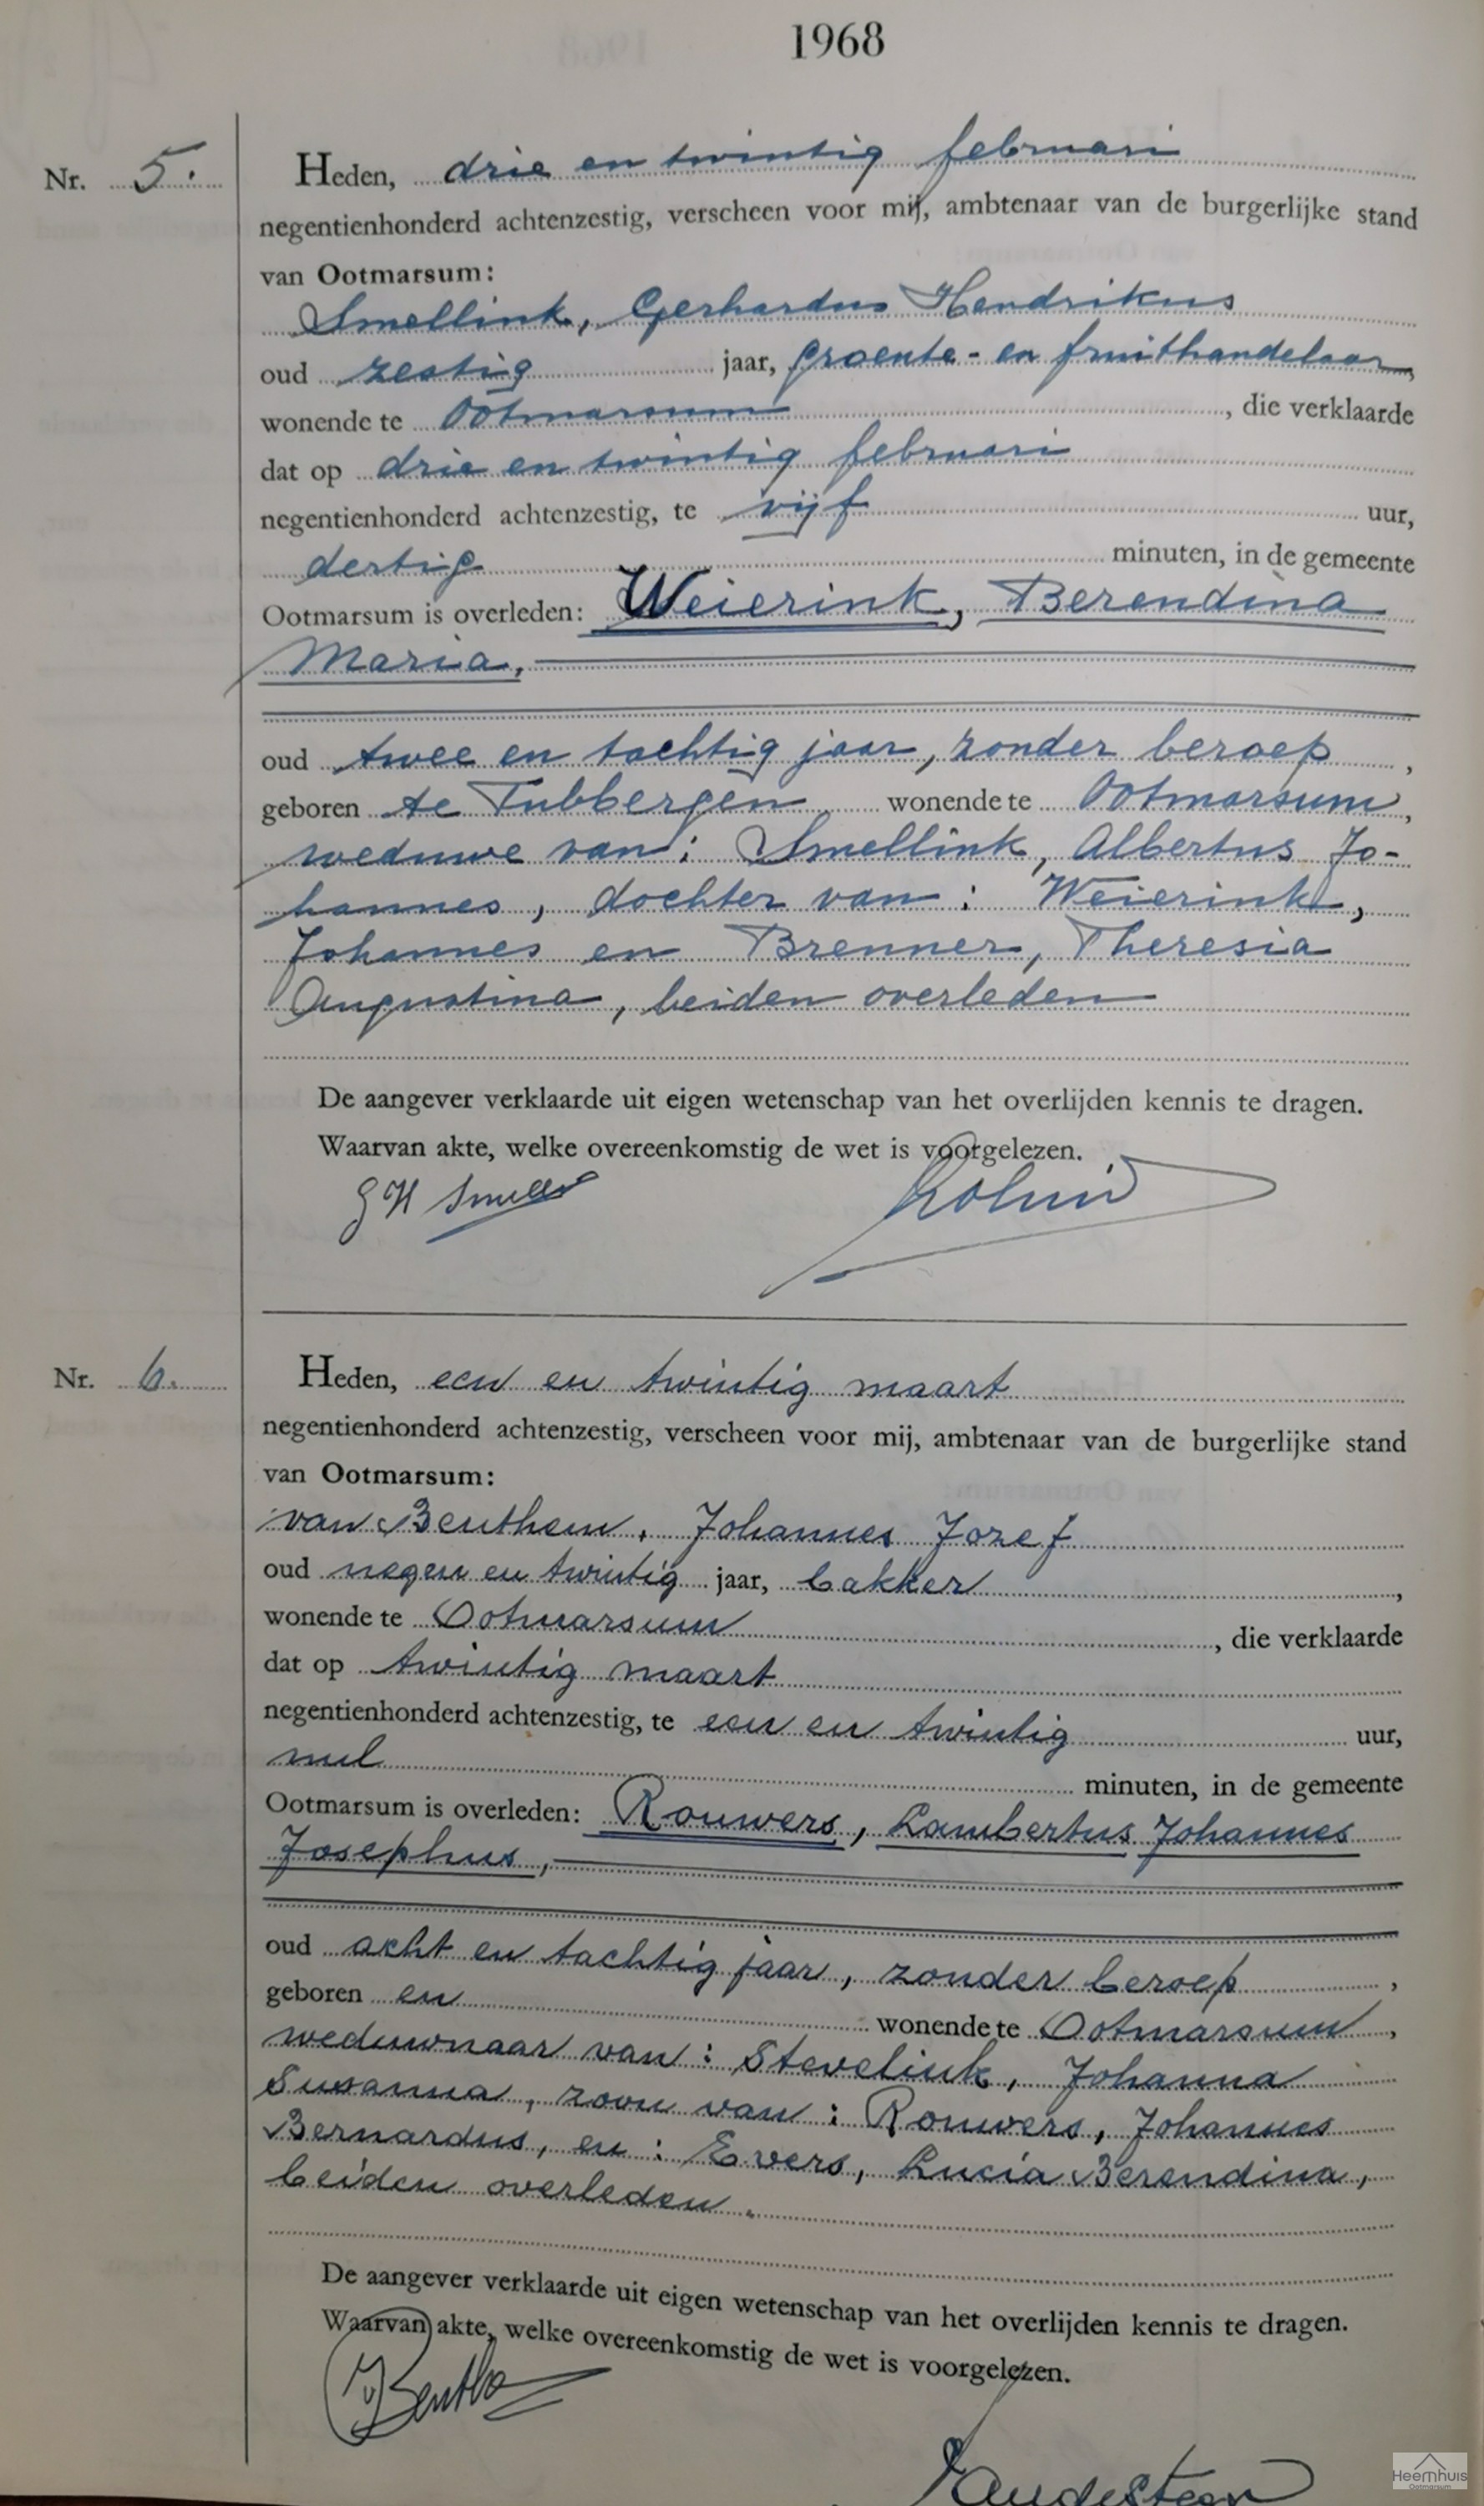 1968
Nr. 5.
Heden, drie en twintig februari
negentienhonderd achtenzestig, verscheen voor mij, ambtenaar van de burgerlijke stand
van Ootmarsum:
Smellink, Gerhardus Hendrikus
oud zestig jaar, groente- en fruithandelaar,
wonende te Ootmarsum, die verklaarde
dat op drie en twintig februari
negentienhonderd achtenzestig, te vijf uur,
dertig minuten, in de gemeente
Ootmarsum is overleden: Weierink, Berendina
Maria,
oud twee en tachtig jaar, zonder beroep,
geboren te Tubbergen wonende te Ootmarsum,
weduwe van: Smellink, Albertus Jo-
hannes, dochter van: Weierink,
Johannes en Brenner, Theresia
Augustina, beiden overleden
De aangever verklaarde uit eigen wetenschap van het overlijden kennis te dragen.
Waarvan akte, welke overeenkomstig de wet is voorgelezen.
G H
Nr. 6.
Heden, een en twintig maart
negentienhonderd achtenzestig, verscheen voor mij, ambtenaar van de burgerlijke stand
van Ootmarsum:
van Benthem, Johannes Jozef
oud negen en twintig jaar, bakker,
wonende te Ootmarsum, die verklaarde
dat op twintig maart
negentienhonderd achtenzestig, te een en twintig uur,
nul minuten, in de gemeente
Ootmarsum is overleden: Rouwers, Lambertus Johannes
Josephus,
oud acht en tachtig jaar, zonder beroep,
geboren en wonende te Ootmarsum,
weduwnaar van: Stevelink, Johanna
Susanna, zoon van: Rouwers, Johannes
Bernardus, en: Evers, Lucia Berendina,
beiden overleden.
De aangever verklaarde uit eigen wetenschap van het overlijden kennis te dragen.
Waarvan akte, welke overeenkomstig de wet is voorgelezen.
Heemhuis
Ootmarsum